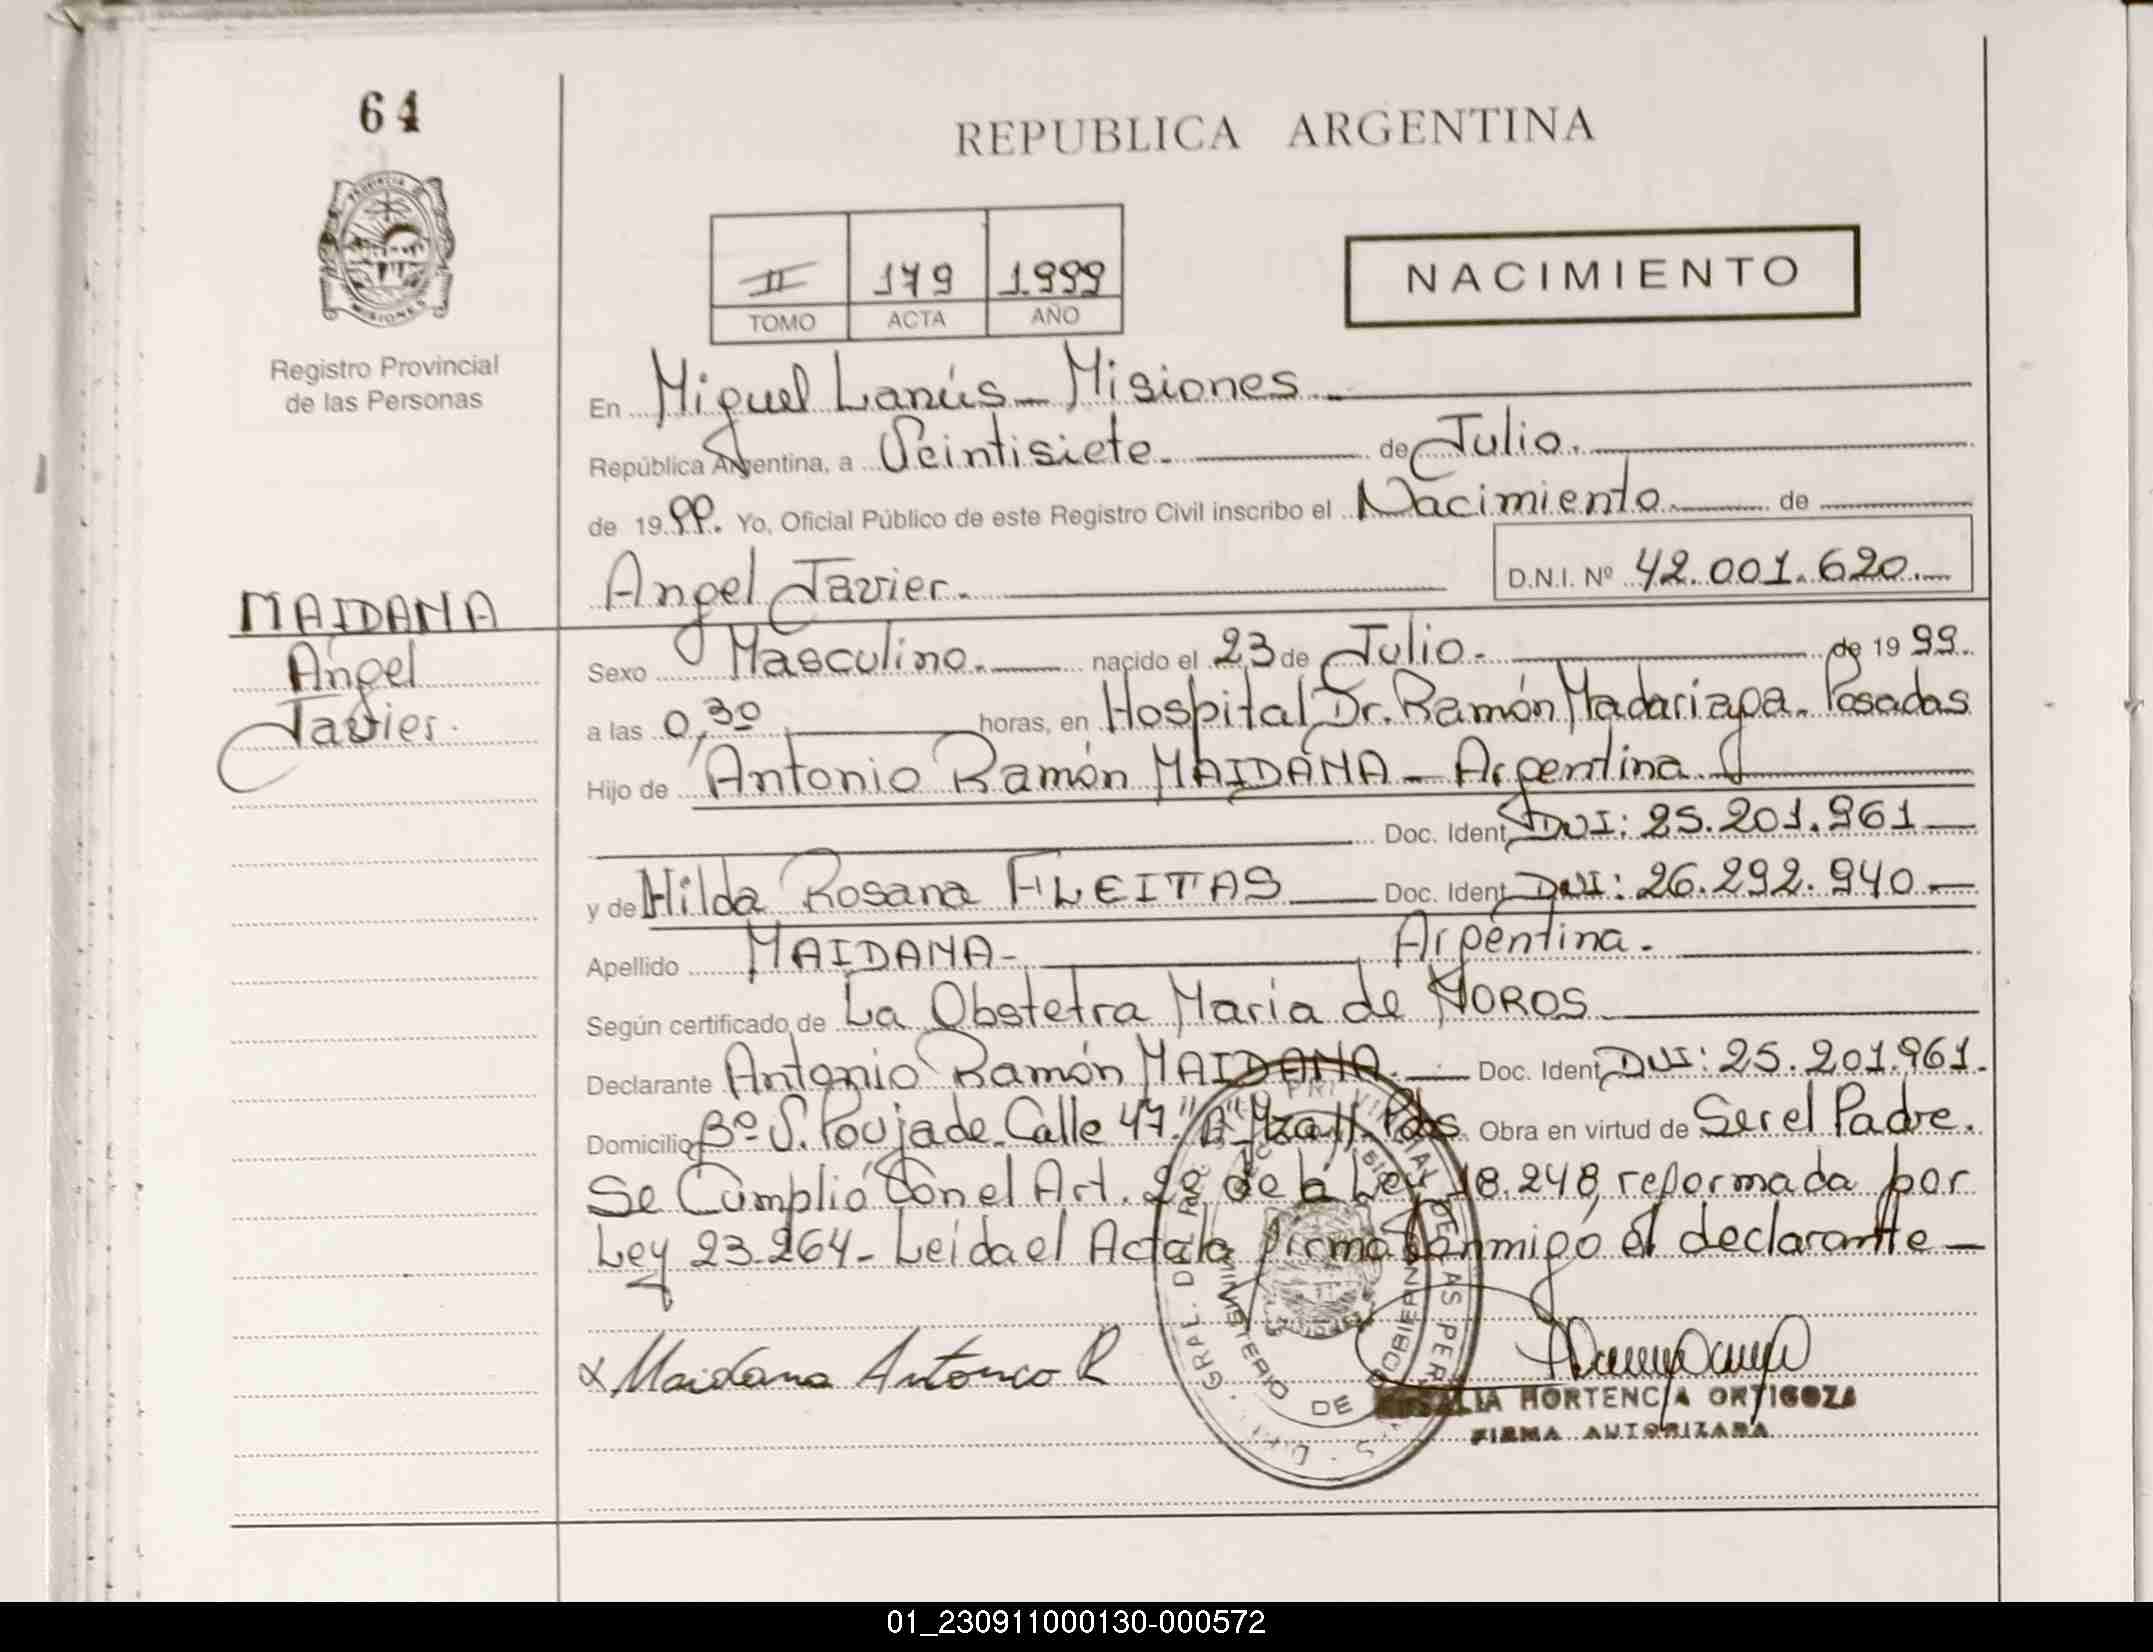 64
REPUBLICA ARGENTINA
PROVINCIA D
MISIONES
II 179 1.999
TOMO ACTA AÑO
NACIMIENTO
Registro Provincial
de las Personas
En Miguel Lanús - Misiones
República Argentina, a Veintisiete. de Julio.
de 1999. Yo, Oficial Público de este Registro Civil inscribo el Nacimiento de
Angel Javier. D.N.I. Nº 42.001.620.
MAIDANA
Angel
Javier.
Sexo Masculino. nacido el 23 de Julio. de 1999.
a las 0,30 horas, en Hospital Dr. Ramón Madariaga. Posadas
Hijo de Antonio Ramón MAIDANA - Argentina
Doc. Ident. DNI: 25.201.961
y de Hilda Rosana FLEITAS Doc. Ident. DNI: 26.292.940
Apellido MAIDANA - Argentina.
Según certificado de La Obstetra Maria de MOROS
Declarante Antonio Ramón MAIDANA. Doc. Ident. DNI: 25.201.961.
Domicilio Bº S. Poujade. Calle 47. Pdas Obra en virtud de Ser el Padre.
Se Cumplió Con el Art. 29 de la Ley 18.248, reformada por
Ley 23.264 - Leida el Acta la firma Conmigo él declarante
x Maidana Antonio R
MINISTERIO DE GOBIERNO
HORTENCIA ORTIGOZA
FIRMA AUTORIZADA
01_230911000130-000572